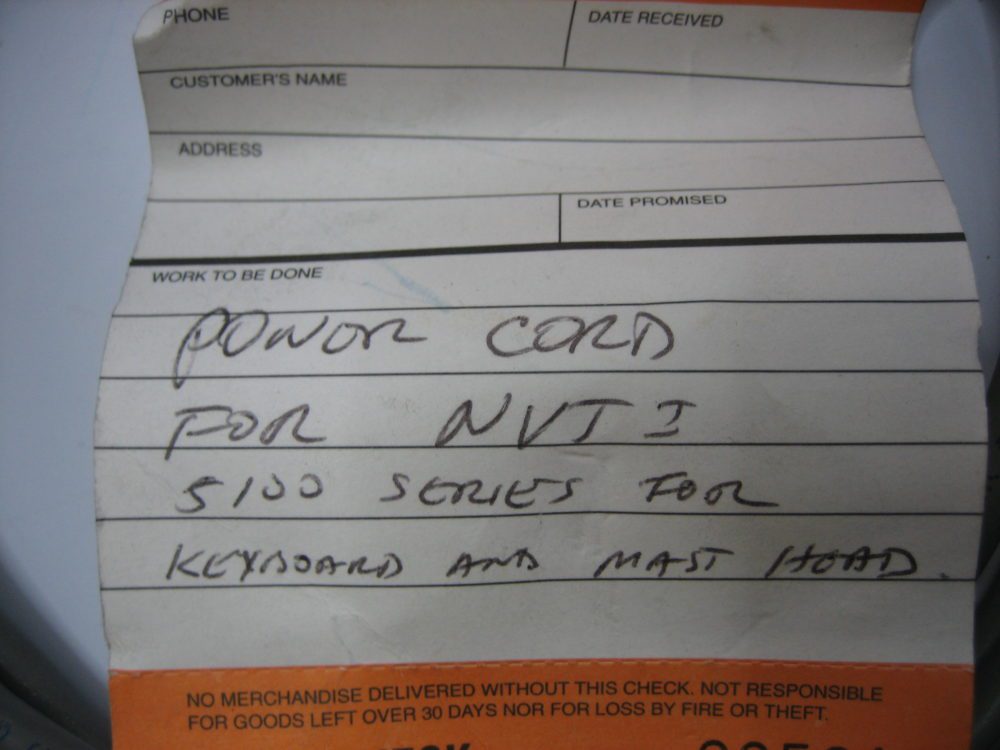 PHONE
DATE RECEIVED
CUSTOMER'S NAME
ADDRESS
DATE PROMISED
WORK TO BE DONE
POWOR CORD
FOR NVT I
5100 SERIES FOR
KEYBOARD AND MAST HEAD.
NO MERCHANDISE DELIVERED WITHOUT THIS CHECK. NOT RESPONSIBLE
FOR GOODS LEFT OVER 30 DAYS NOR FOR LOSS BY FIRE OR THEFT.